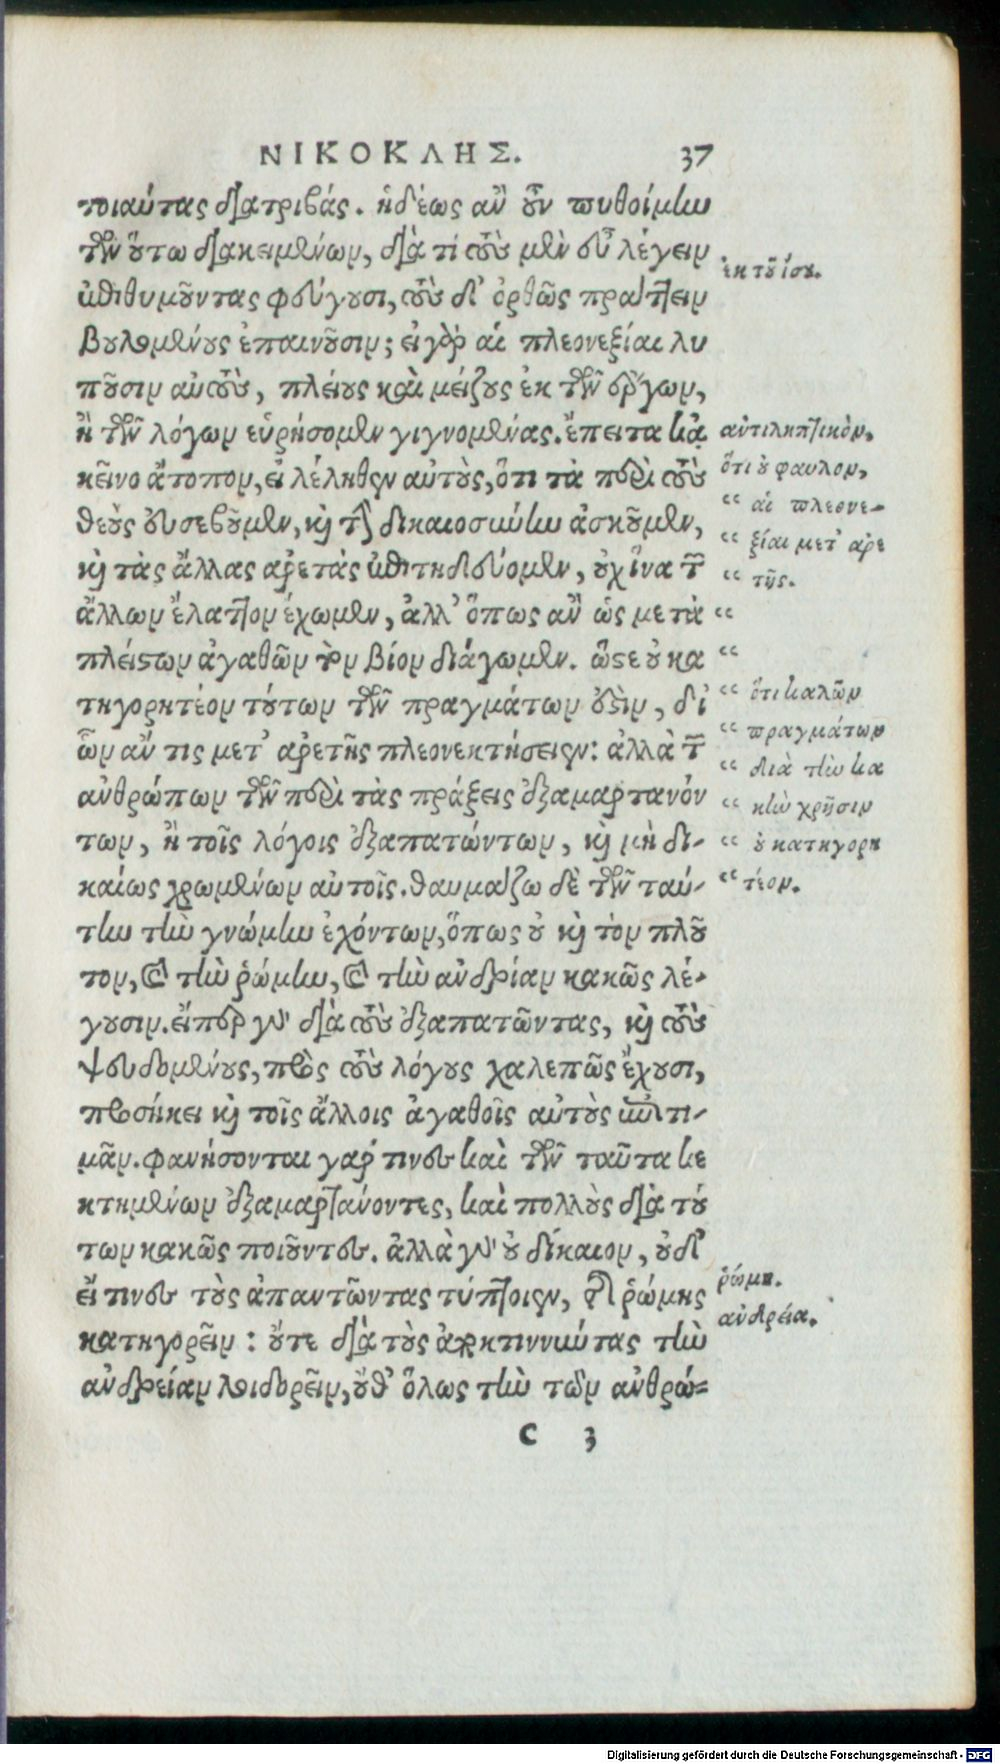 ΝΙΚΟΚΛΗΣ. 37
τοιαύτας διατριβάς. ἡδέως ἂν οὖν πυθοίμην
τῶν οὕτω διακειμένων, διὰ τί τοὺς μὲν εὖ λέγειν
ἐπιθυμοῦντας ψεύγουσι, τοὺς δ' ὀρθῶς πράττειν
βουλομένους ἐπαινοῦσιν; εἰ γὰρ αἱ πλεονεξίαι λυ
ποῦσιν αὐτοὺς, πλείους καὶ μείζους ἐκ τῶν ἔργων,
ἢ τῶν λόγων εὑρήσομεν γιγνομένας. ἔπειτα κἀ
κεῖνο ἄτοπον, εἰ λέληθεν αὐτοὺς, ὅτι τὰ περὶ τοὺς
θεοὺς εὐσεβοῦμεν, καὶ τὴν δικαιοσύνην ἀσκοῦμεν,
καὶ τὰς ἄλλας ἀρετὰς ἐπιτηδεύομεν, οὐχ ἵνα τῶν
ἄλλων ἔλαττον ἔχωμεν, ἀλλ' ὅπως ἂν ὡς μετὰ
πλείστων ἀγαθῶν τὸν βίον διάγωμεν. ὥστε οὐ κα
τηγορητέον τούτων τῶν πραγμάτων ἐστὶν, δι'
ὧν ἄν τις μετ' ἀρετῆς πλεονεκτήσειεν: ἀλλὰ τῶν
ἀνθρώπων τῶν περὶ τὰς πράξεις ἐξαμαρτανόν
των, ἢ τοῖς λόγοις ἐξαπατώντων, καὶ μὴ δι-
καίως χρωμένων αὐτοῖς. θαυμάζω δὲ τῶν ταύ-
την τὴν γνώμην ἐχόντων, ὅπως οὐ καὶ τὸν πλοῦ
τον, καὶ τὴν ῥώμην, καὶ τὴν ἀνδρίαν κακῶς λέ-
γουσιν. εἴπερ γὰρ διὰ τοὺς ἐξαπατῶντας, καὶ τοὺς
ψευδομένους, πρὸς τοὺς λόγους χαλεπῶς ἔχουσι,
προσήκει καὶ τοῖς ἄλλοις ἀγαθοῖς αὐτοὺς ἐπιτι-
μᾶν. φανήσονται γάρ τινες καὶ τῶν ταῦτα κε
κτημένων ἐξαμαρτάνοντες, καὶ πολλοὺς διὰ τού
των κακῶς ποιοῦντες. ἀλλὰ γὰρ οὐ δίκαιον, οὐδ'
εἴ τινες τοὺς ἀπαντῶντας τύπτοιεν, τῆς ῥώμης
κατηγορεῖν: οὔτε διὰ τοὺς ἀποκτιννύντας τὴν
ἀνδρείαν λοιδορεῖν, οὔθ' ὅλως τὴν τῶν ἀνθρώ=
C 3
ἐκ τοῦ ἴσου.
ἀντιληπτικὸν.
ὅτι οὐ φαυλον,
“ αἱ πλεονε-
“ ξίαι μετ' ἀρε
“ τῆς.
“
“
“ ὅτι καλῶν
“ πραγμάτων
“ διὰ τὴν κα
“ κὴν χρῆσιν
“ οὐ κατηγορη
“ τέον.
ῥώμη.
ἀνδρεία.
Digitalisierung gefördert durch die Deutsche Forschungsgemeinschaft - DFG